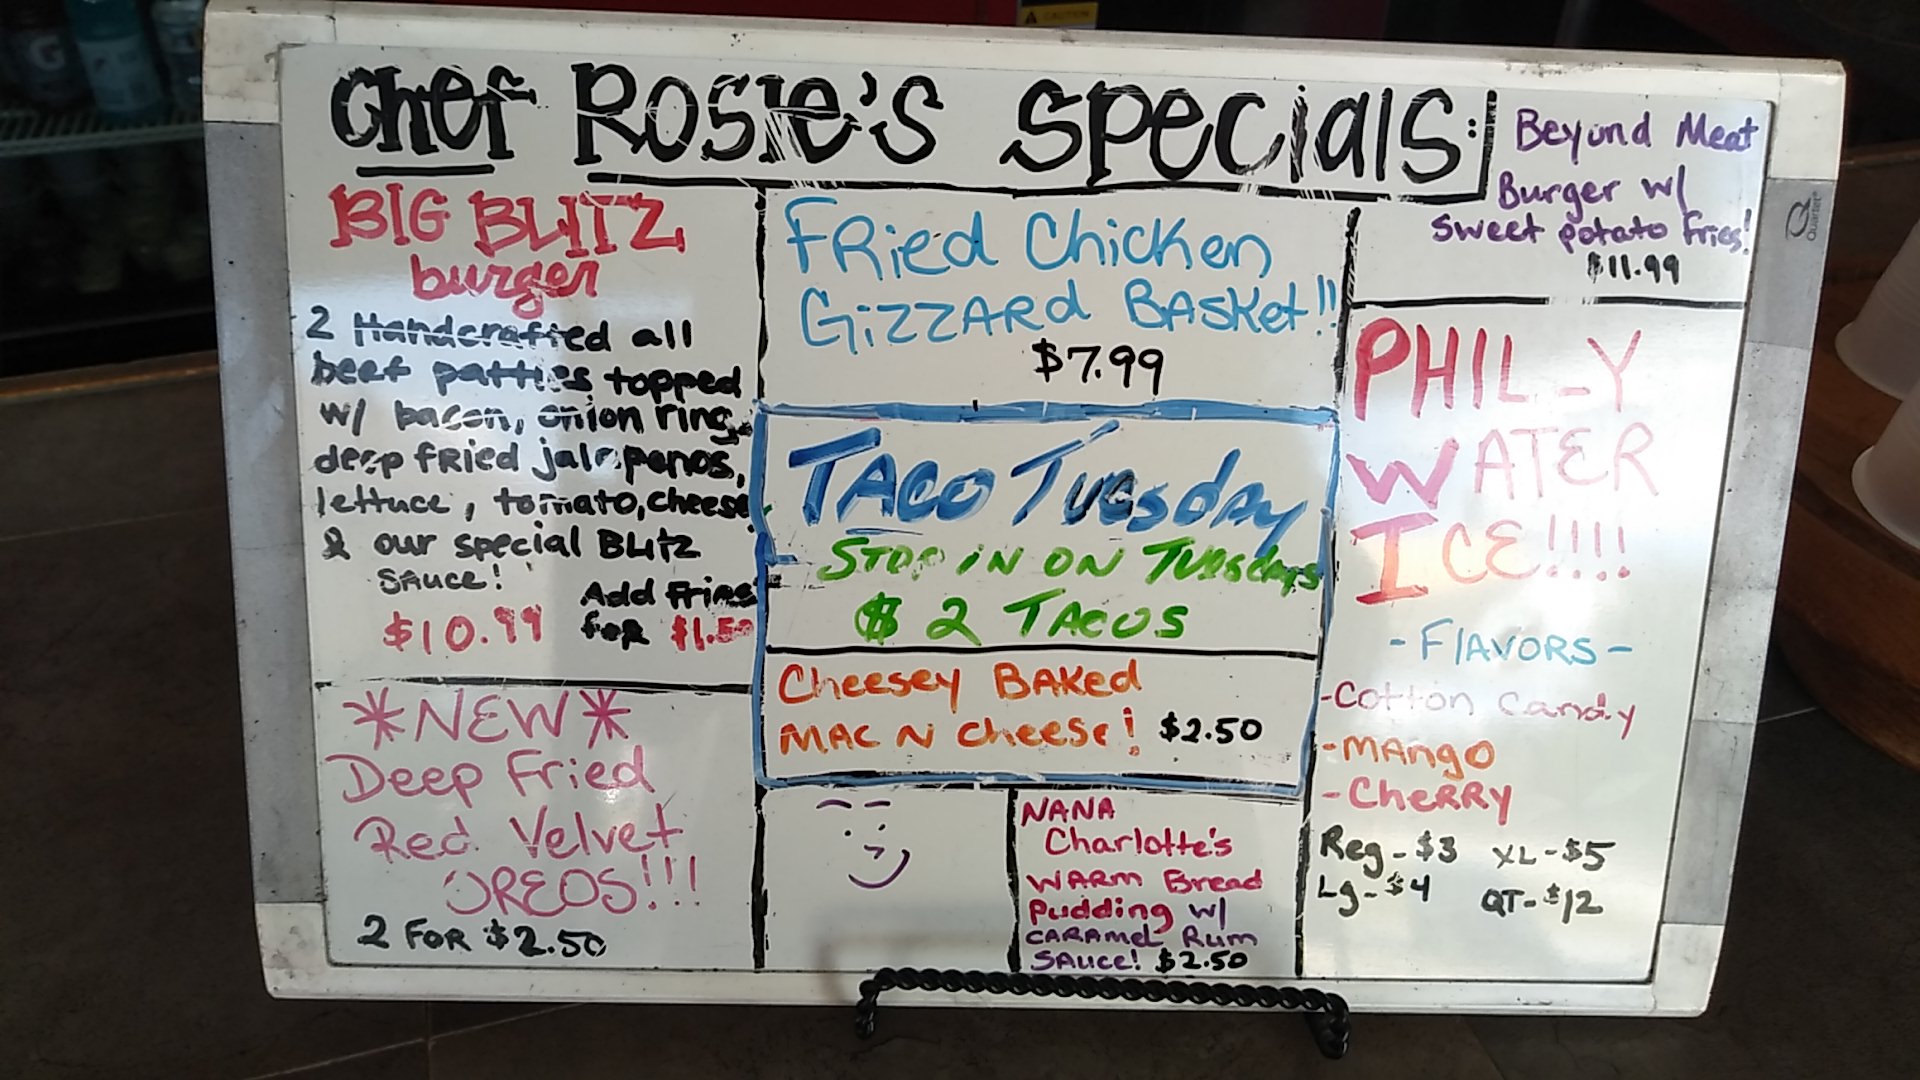 Chef Rosie's Specials:
BIG BLITZ
burger
2 Handcrafted all
beef patties topped
w/ bacon, onion ring,
deep fried jalapenos,
lettuce, tomato, cheese
& our special Blitz
sauce!
$10.99
Add fries
for $1.50
*NEW*
Deep Fried
Red Velvet
OREOS!!!
2 FOR $2.50
Fried Chicken
Gizzard Basket!!
$7.99
Taco Tuesday
Stop in on Tuesdays
$2 Tacos
Cheesey Baked
Mac N Cheese! $2.50
NANA
Charlotte's
WARM Bread
Pudding w/
CARAMEL Rum
Sauce! $2.50
Beyond Meat
Burger w/
sweet potato fries!
$11.99
PHIL-Y
WATER
ICE!!!!
- Flavors -
-Cotton Candy
-Mango
-Cherry
Reg - $3 XL - $5
Lg - $4 QT - $12
Quartet
CAUTION
G